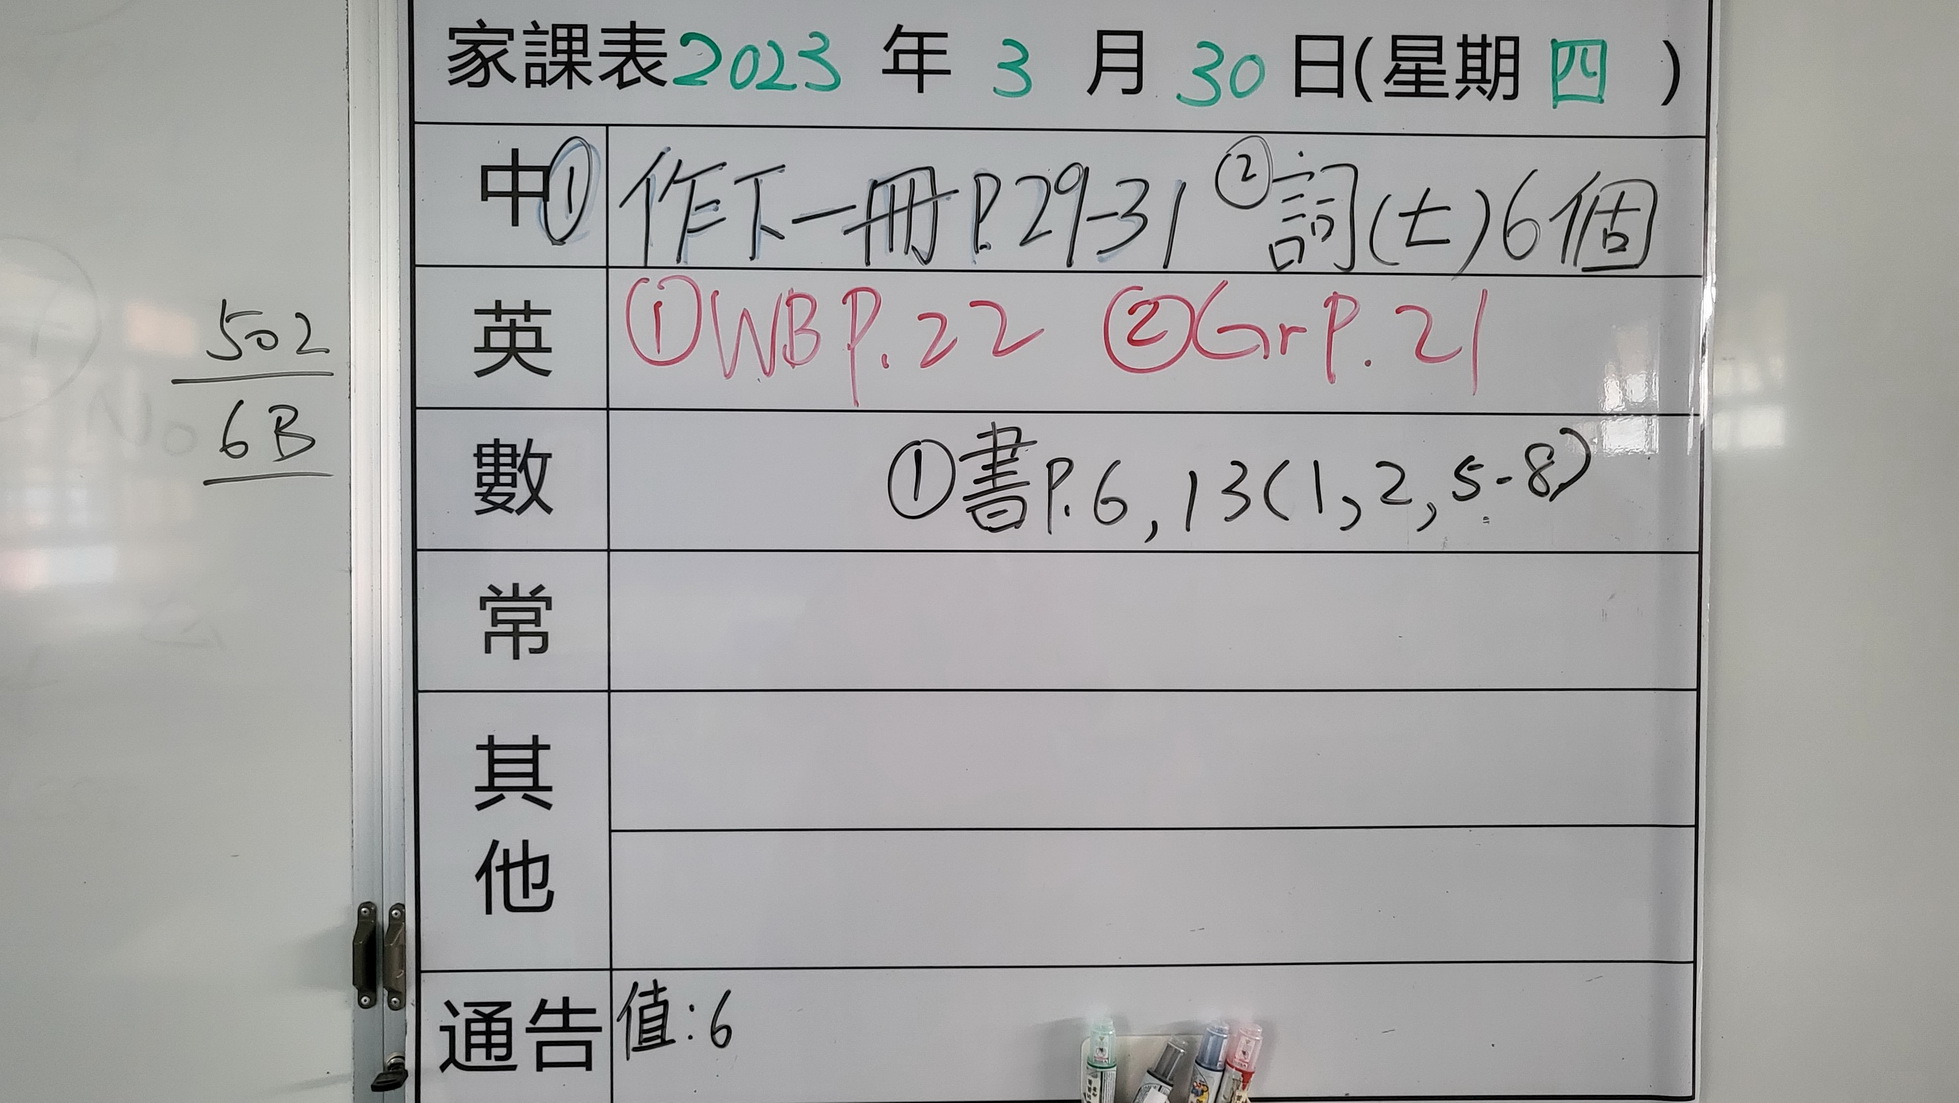 家課表2023年3月30日(星期四)
中 ①作下一冊P.29-31 ②詞(七)6個
英 ①WB P.22 ②Gr P.21
數 ①書P.6,13(1,2,5-8)
常
其他
通告 值:6
502
6B